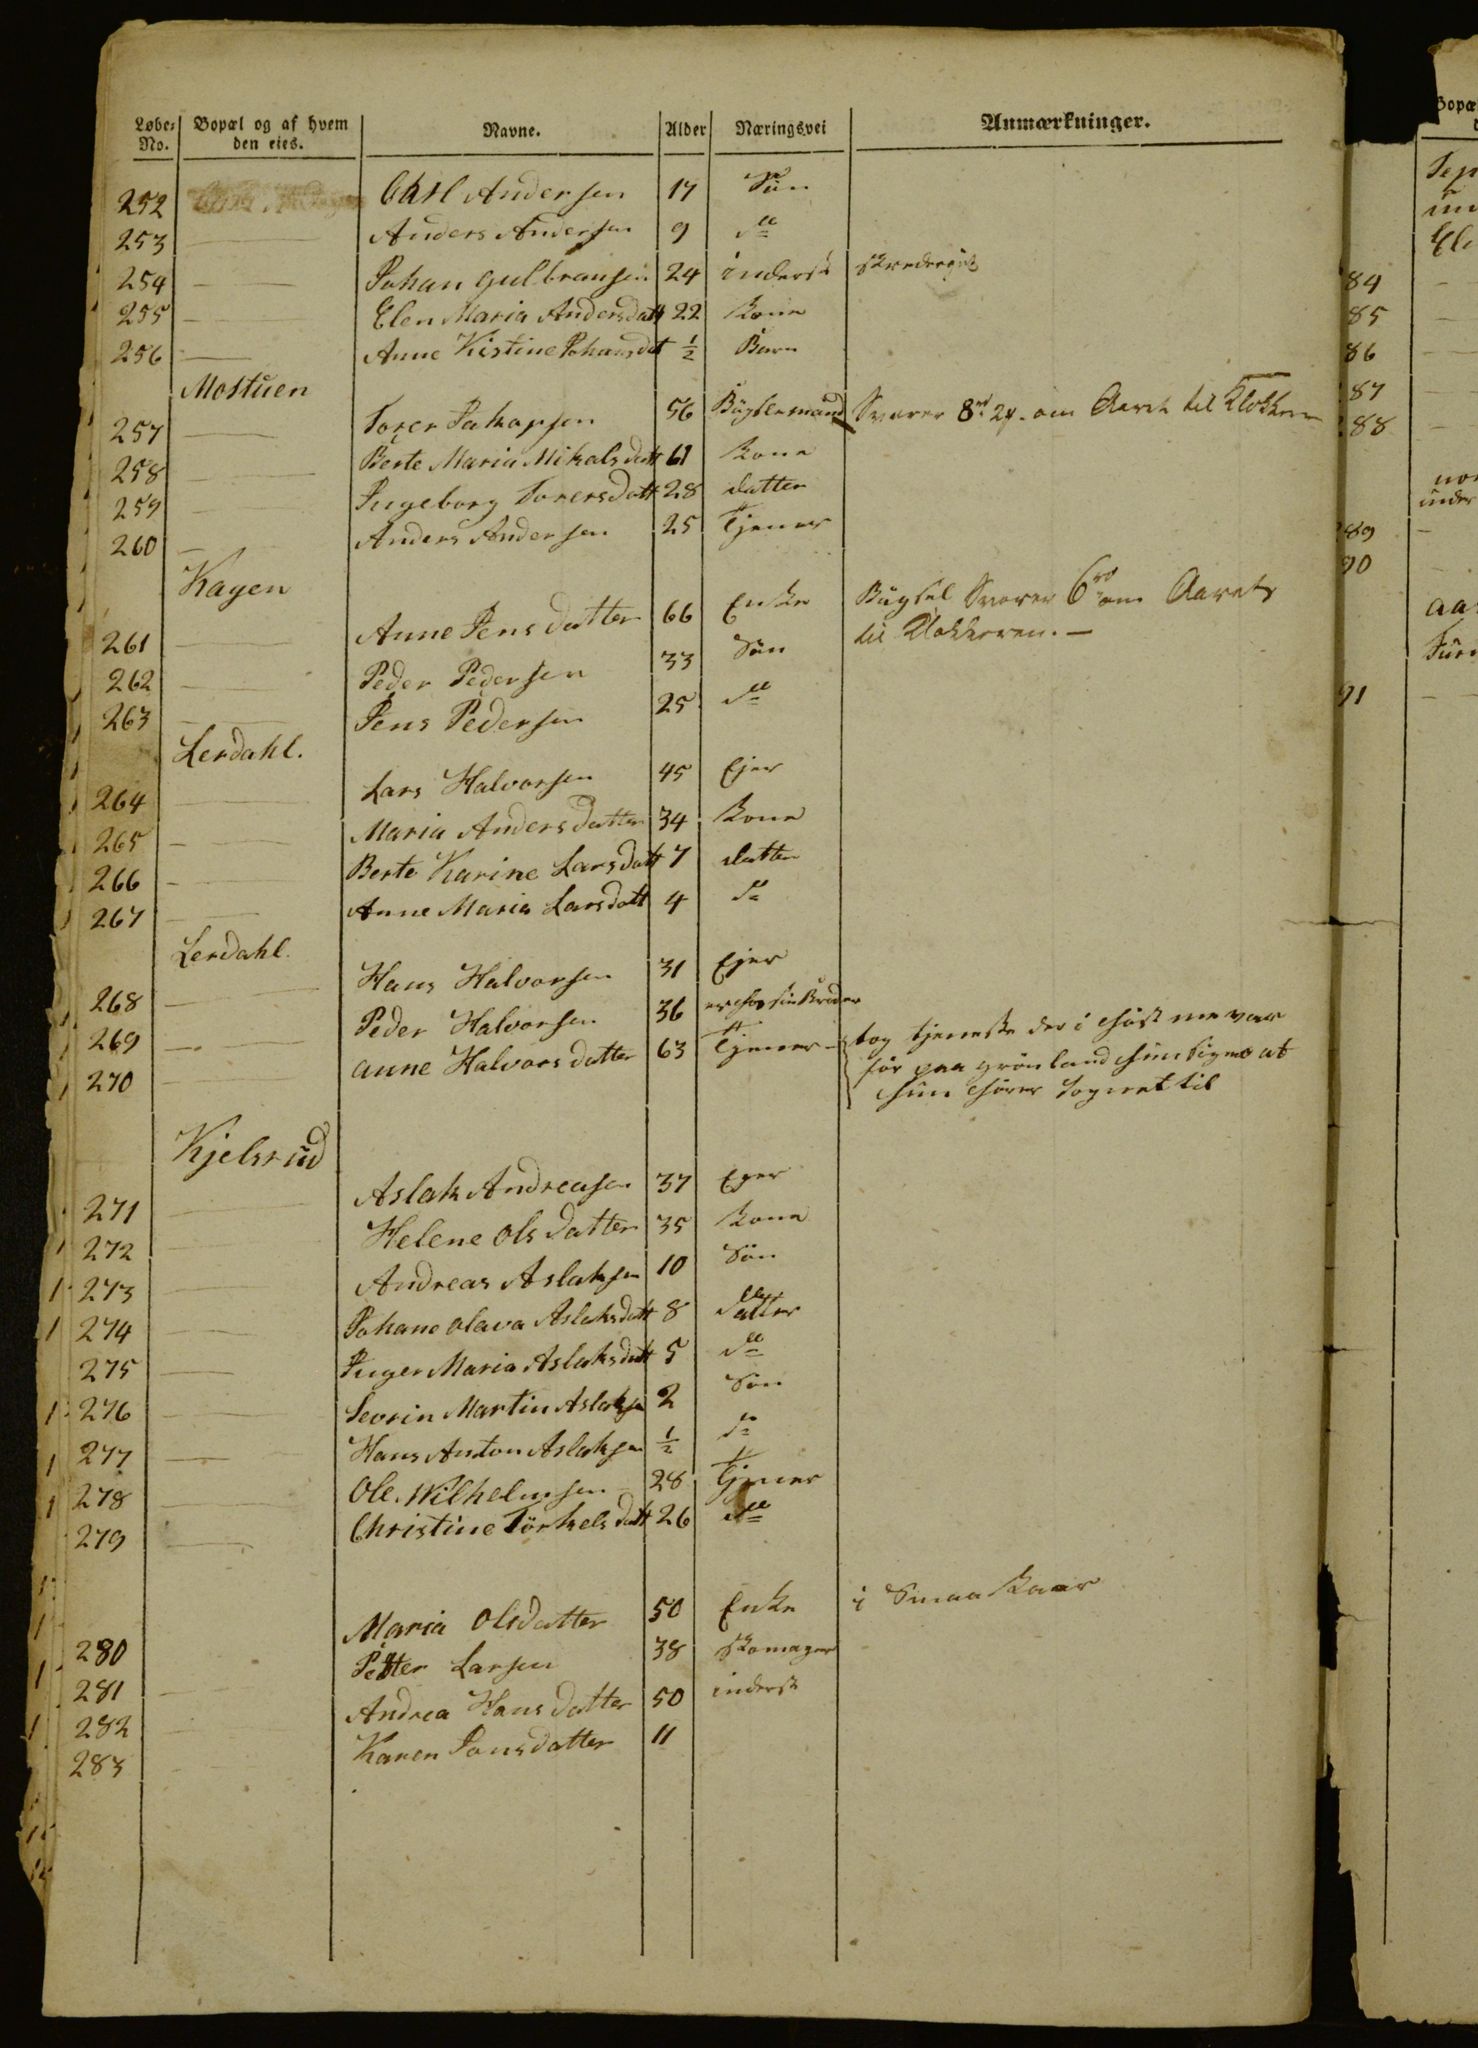 Løbe-No. Bopæl og af hvem den eies. Navne. Alder Næringsvei Anmærkninger.
252 Carl Andersen 17 Søn
253 Anders Andersen 9 do
254 Johan Gulbransen 24 inderst
255 Elen Maria Andersdatt 22 kone
256 Anne Kistine Johansdat ½ Barn
Mostuen
257 Torer Jakopsen 56 Bügselmand Svarer 8 rd 24 om Aaret til Klokkeren
258 Berte Maria Mikalsdatt 61 kone
259 Ingeborg Torersdatt 28 datter
260 Anders Andersen 25 Tjener
Kagen
261 Anne Jensdatter 66 Enke Bügsel Svarer 6 rd om Aaret
262 Peder Pedersen 33 Søn til Klokkeren.
263 Jens Pedersen 25 do
Lerdahl.
264 Lars Halvorsen 45 Ejer
265 Maria Andersdatter 34 kone
266 Berte Karine Larsdatt 7 datter
267 Anne Maria Larsdatt 4 do
Lerdahl.
268 Hans Halvorsen 31 Ejer
269 Peder Halvorsen 36 er hos sin Broder
270 Anne Halvorsdatter 63 Tjener tog tjeneste der i høst me var
før paa grønland hün siger at
hün hører Sognet til
Kjelsrüd
271 Aslak Andreasen 37 Eger
272 Helene Olsdatter 35 kone
273 Andreas Aslaksen 10 Søn
274 Johane Olava Aslaksdatt 8 datter
275 Inger Maria Aslaksdatt 5 do
276 Sevrin Martin Aslaksen 2 Søn
277 Hans Anton Aslaksen ½ do
278 Ole Wilhelmsen 28 Tjener
279 Christine Törkelsdatt 26 do
280 Maria Olsdatter 50 Enke i Smaa Kaar
281 Petter Larsen 38 Skomager
282 Andrea Hansdatter 50 inderst
283 Karen Jonsdatter 11
84
85
86
87
88
89
90
91